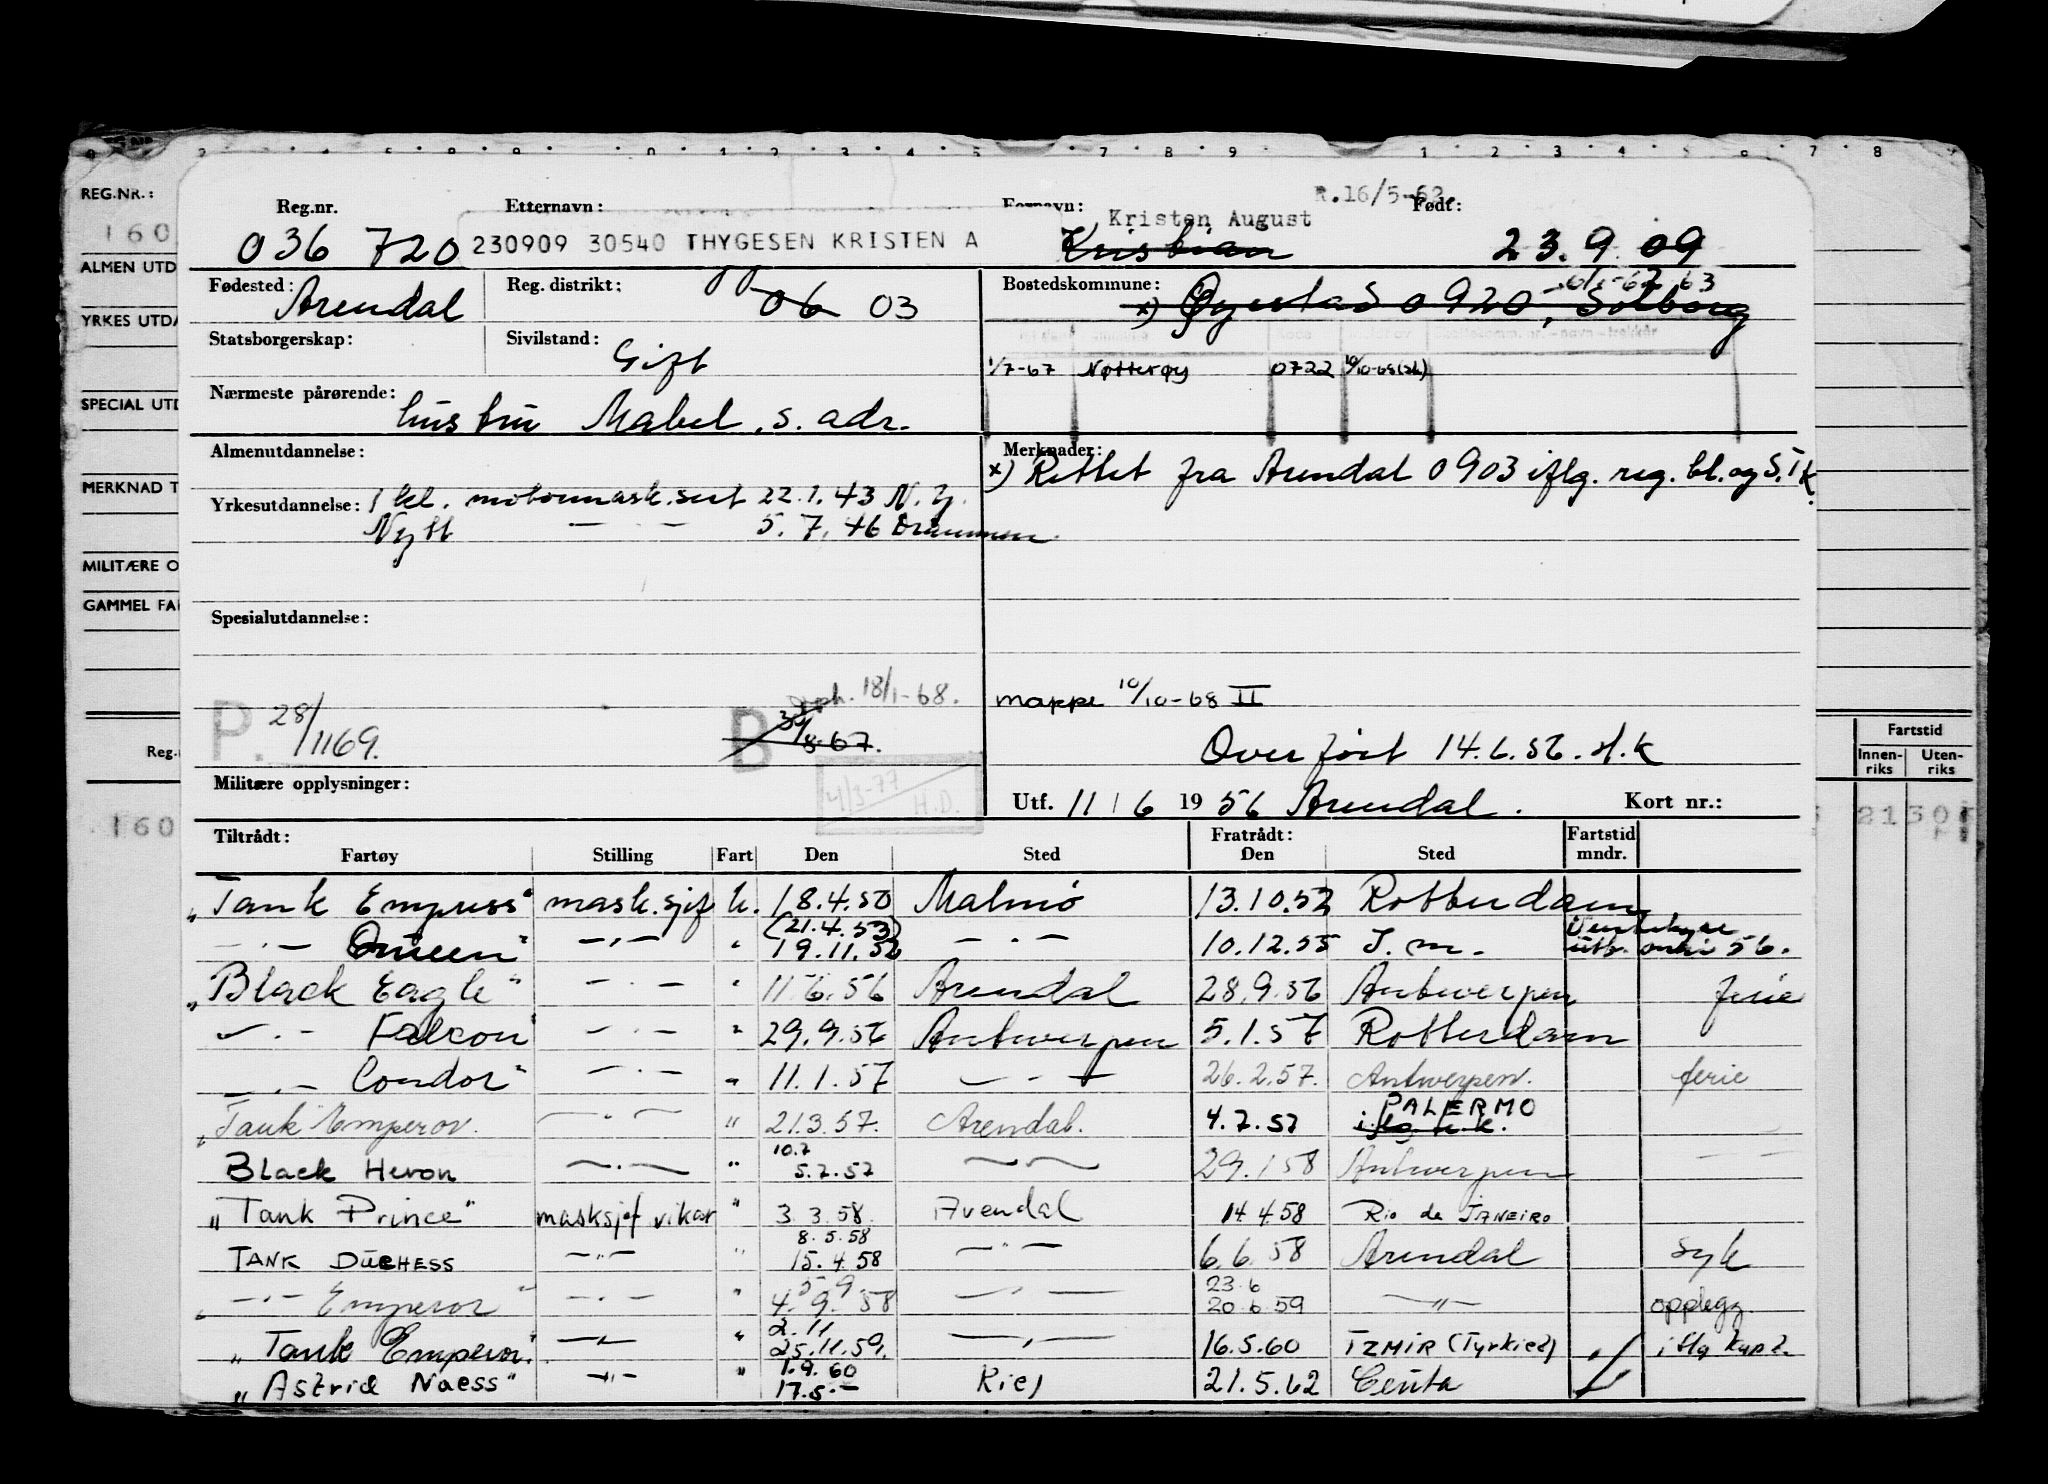 REG.NR.:
160
ALMEN UTD
YRKES UTDA
SPECIAL UTD
MERKNAD T
MILITÆRE O
GAMMEL FA
Reg.
160
R.16/5-62.
Reg.nr. Etternavn: Fornavn: Født:
036 720 230909 30540 THYGESEN KRISTEN A Kristen August 23.9.09
Kristian
Fødested: Arendal Reg. distrikt: 06 03 Bostedskommune: x) Øyestad 0920, Solborg
Statsborgerskap: Sivilstand: Gift
1/7-67 Nøtterøy 0722 10/10-68
Nærmeste pårørende: hustru Mabel, s. adr.
Almenutdannelse: Merknader:
x) Rettet fra Arendal 0903 iflg. reg. bl. og S.T.K.
Yrkesutdannelse: 1 kl. motormask.sert 22.1.43 N.Y.
Nytt — · — 5.7.46 Drammen
Spesialutdannelse:
18/1-68.
P. 28/1169. B 8-67. mappe 10/10-68 II
Overført 14.6.56.
Militære opplysninger: 4/3-77 H.D. Utf. 11/6 1956 Arendal. Kort nr.:
Fartstid
Innenriks Utenriks
21 30
Tiltrådt: Fratrådt: Fartstid
Fartøy Stilling Fart Den Sted Den Sted mndr.
"Tank Empress" mask.sjef u. 18.4.50 Malmø 13.10.52 Rotterdam
— · — Queen" — · — " (21.4.53) 19.11.52 — · — 10.12.55 56.
"Black Eagle" — · — " 11.6.56 Arendal 28.9.56 Antwerpen ferie
— · — Falcon" — · — " 29.9.56 Antwerpen 5.1.57 Rotterdam
— · — Condor" — · — " 11.1.57 — · — 26.2.57. Antwerpen. ferie
"Tank Emperor. — · — " 21.3.57. Arendal. 4.7.57 PALERMO
Black Heron — · — " 10.7 5.7.57 — · — 29.1.58 Antwerpen — —
"Tank Prince" masksjef vikar " 3.3.58. Arendal 14.4.58 Rio de JANEIRO
TANK DUCHESS — " — " 8.5.58 15.4.58 — " — 6.6.58 Arendal syk
" — · — Emperor" — · — " 5 9 4.9.58 — · — 23.6 20.6.59 — " — opplegg.
"Tank Emperor." — " — " 2.11 25.11.59. — · — 16.5.60 IZMIR (Tyrkiet)
"Astrid Naess" — " — " 1.9.60 17.5.— Kiel 21.5.62 Ceuta